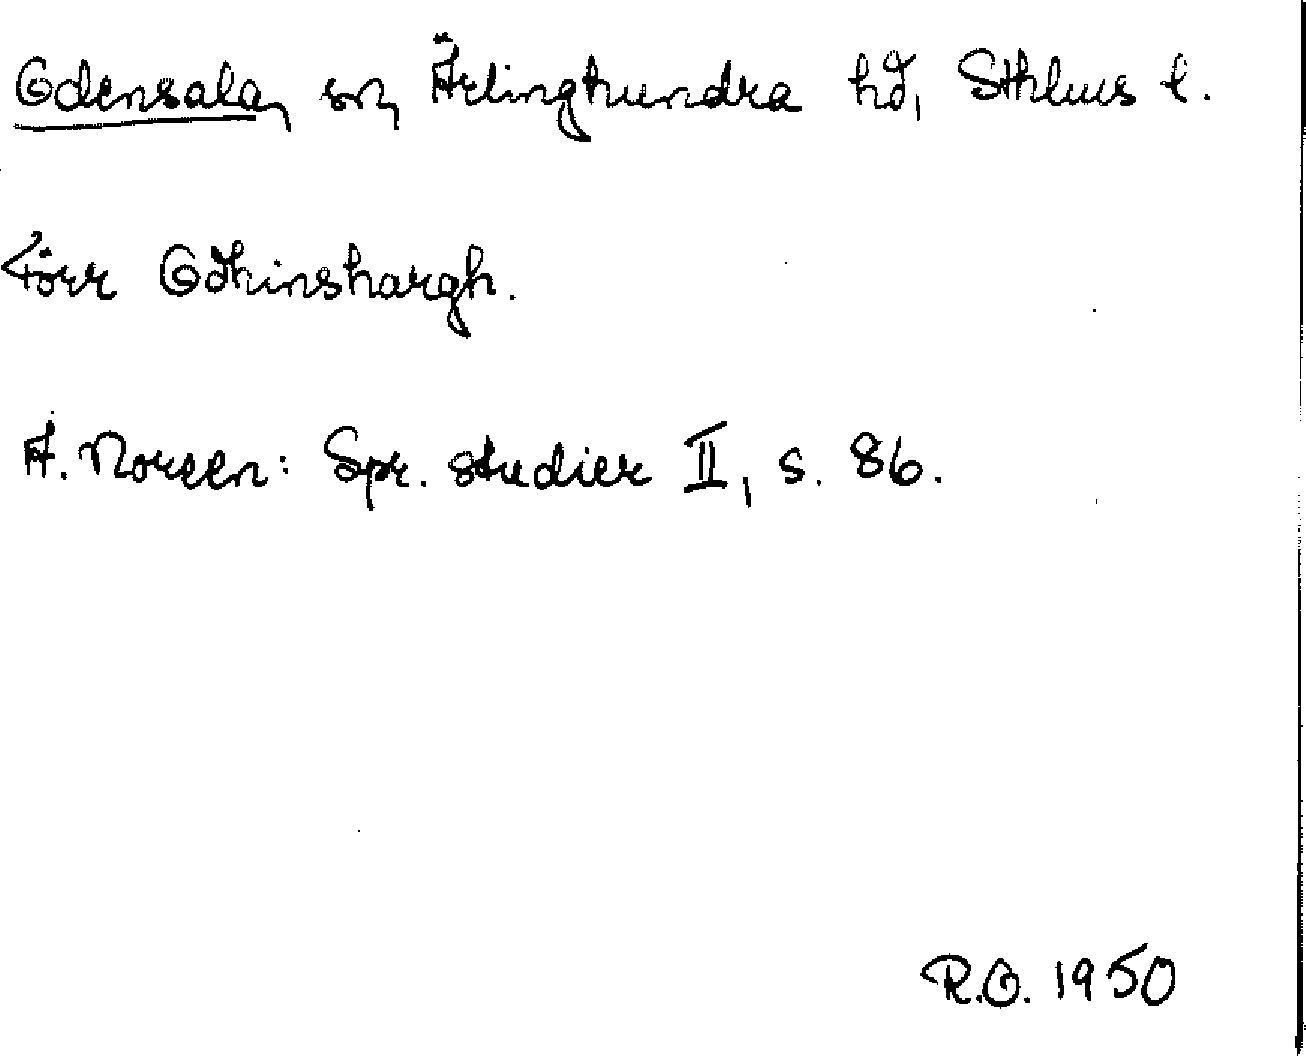 Odensala, sn, Ärlinghundra hd, Sthlms l.
Förr Odhinshargh.
A. Noreen: Spr. studier II, s. 86.
R.O. 1950